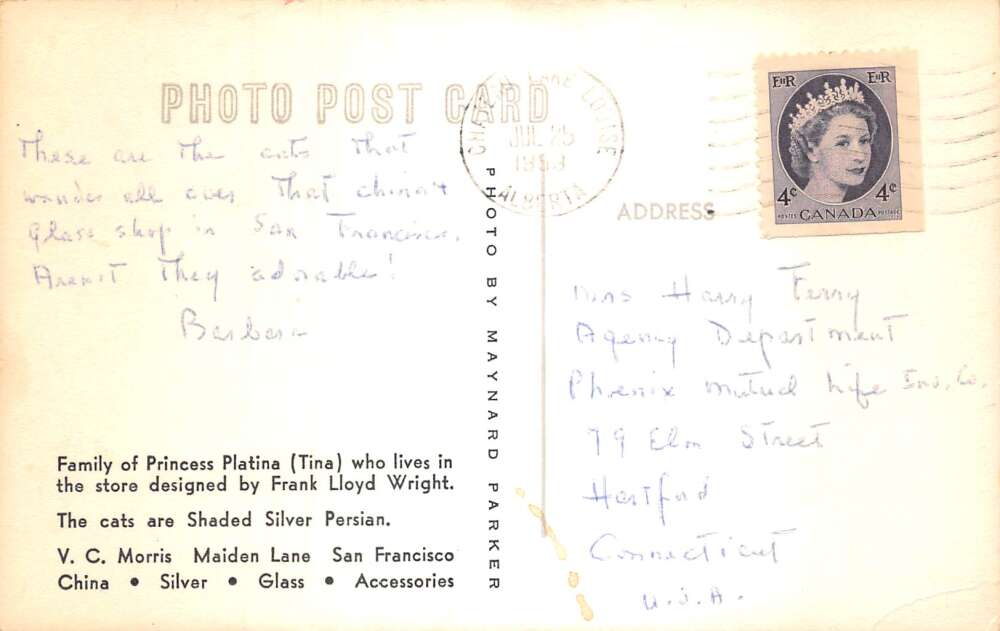 PHOTO POST CARD
These are the cats that
wander all over that china &
glass shop in San Francisco.
Aren't they adorable!
Barbara
Family of Princess Platina (Tina) who lives in
the store designed by Frank Lloyd Wright.
The cats are Shaded Silver Persian.
V. C. Morris Maiden Lane San Francisco
China • Silver • Glass • Accessories
PHOTO BY MAYNARD PARKER
LAKE LOUISE
JUL 25
ALBERTA
EIIR EIIR
4c 4c
POSTES CANADA POSTAGE
ADDRESS
Mrs Harry Ferry
Agency Department
Phenix Mutual Life Ins. Co.
79 Elm Street
Hartford
Connecticut
U.S.A.